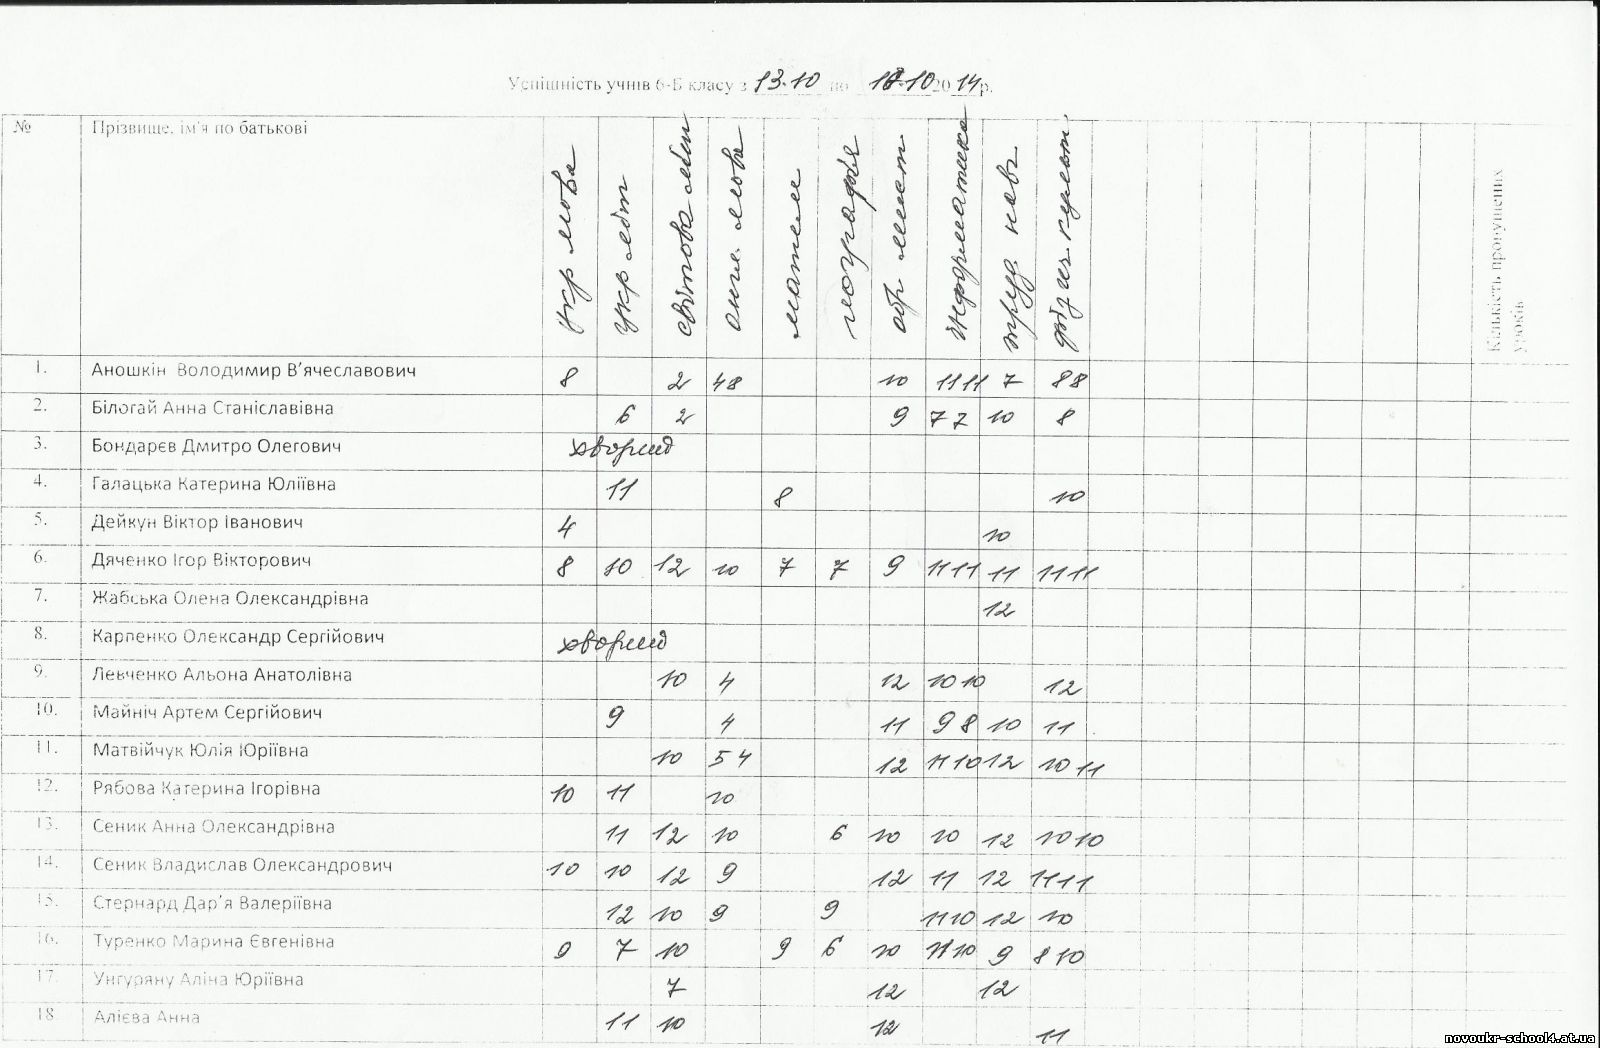 Успішність учнів 6-Б класу з 13.10 по 17.10 2014р.
№ Прізвище, ім'я по батькові укр мова укр літ світова літ англ. мова матем географія обр. мист інформатика труд. навч фізич. культ Кількість пропущених уроків
1. Аношкін Володимир В'ячеславович 8 2 4 8 10 11 11 7 8 8
2. Білогай Анна Станіславівна 6 2 9 7 7 10 8
3. Бондарєв Дмитро Олегович хворий
4. Галацька Катерина Юліївна 11 8 10
5. Дейкун Віктор Іванович 4 10
6. Дяченко Ігор Вікторович 8 10 12 10 7 7 9 11 11 11 11 11
7. Жабська Олена Олександрівна 12
8. Карпенко Олександр Сергійович хворий
9. Левченко Альона Анатолівна 10 4 12 10 10 12
10. Майніч Артем Сергійович 9 4 11 9 8 10 11
11. Матвійчук Юлія Юріївна 10 5 4 12 11 10 12 10 11
12. Рябова Катерина Ігорівна 10 11 10
13. Сеник Анна Олександрівна 11 12 10 6 10 10 12 10 10
14. Сеник Владислав Олександрович 10 10 12 9 12 11 12 11 11
15. Стернард Дар'я Валеріївна 12 10 9 9 11 10 12 10
16. Туренко Марина Євгенівна 9 7 10 9 6 10 11 10 9 8 10
17. Унгуряну Аліна Юріївна 7 12 12
18. Алієва Анна 11 10 12 11
novoukr-school4.at.ua